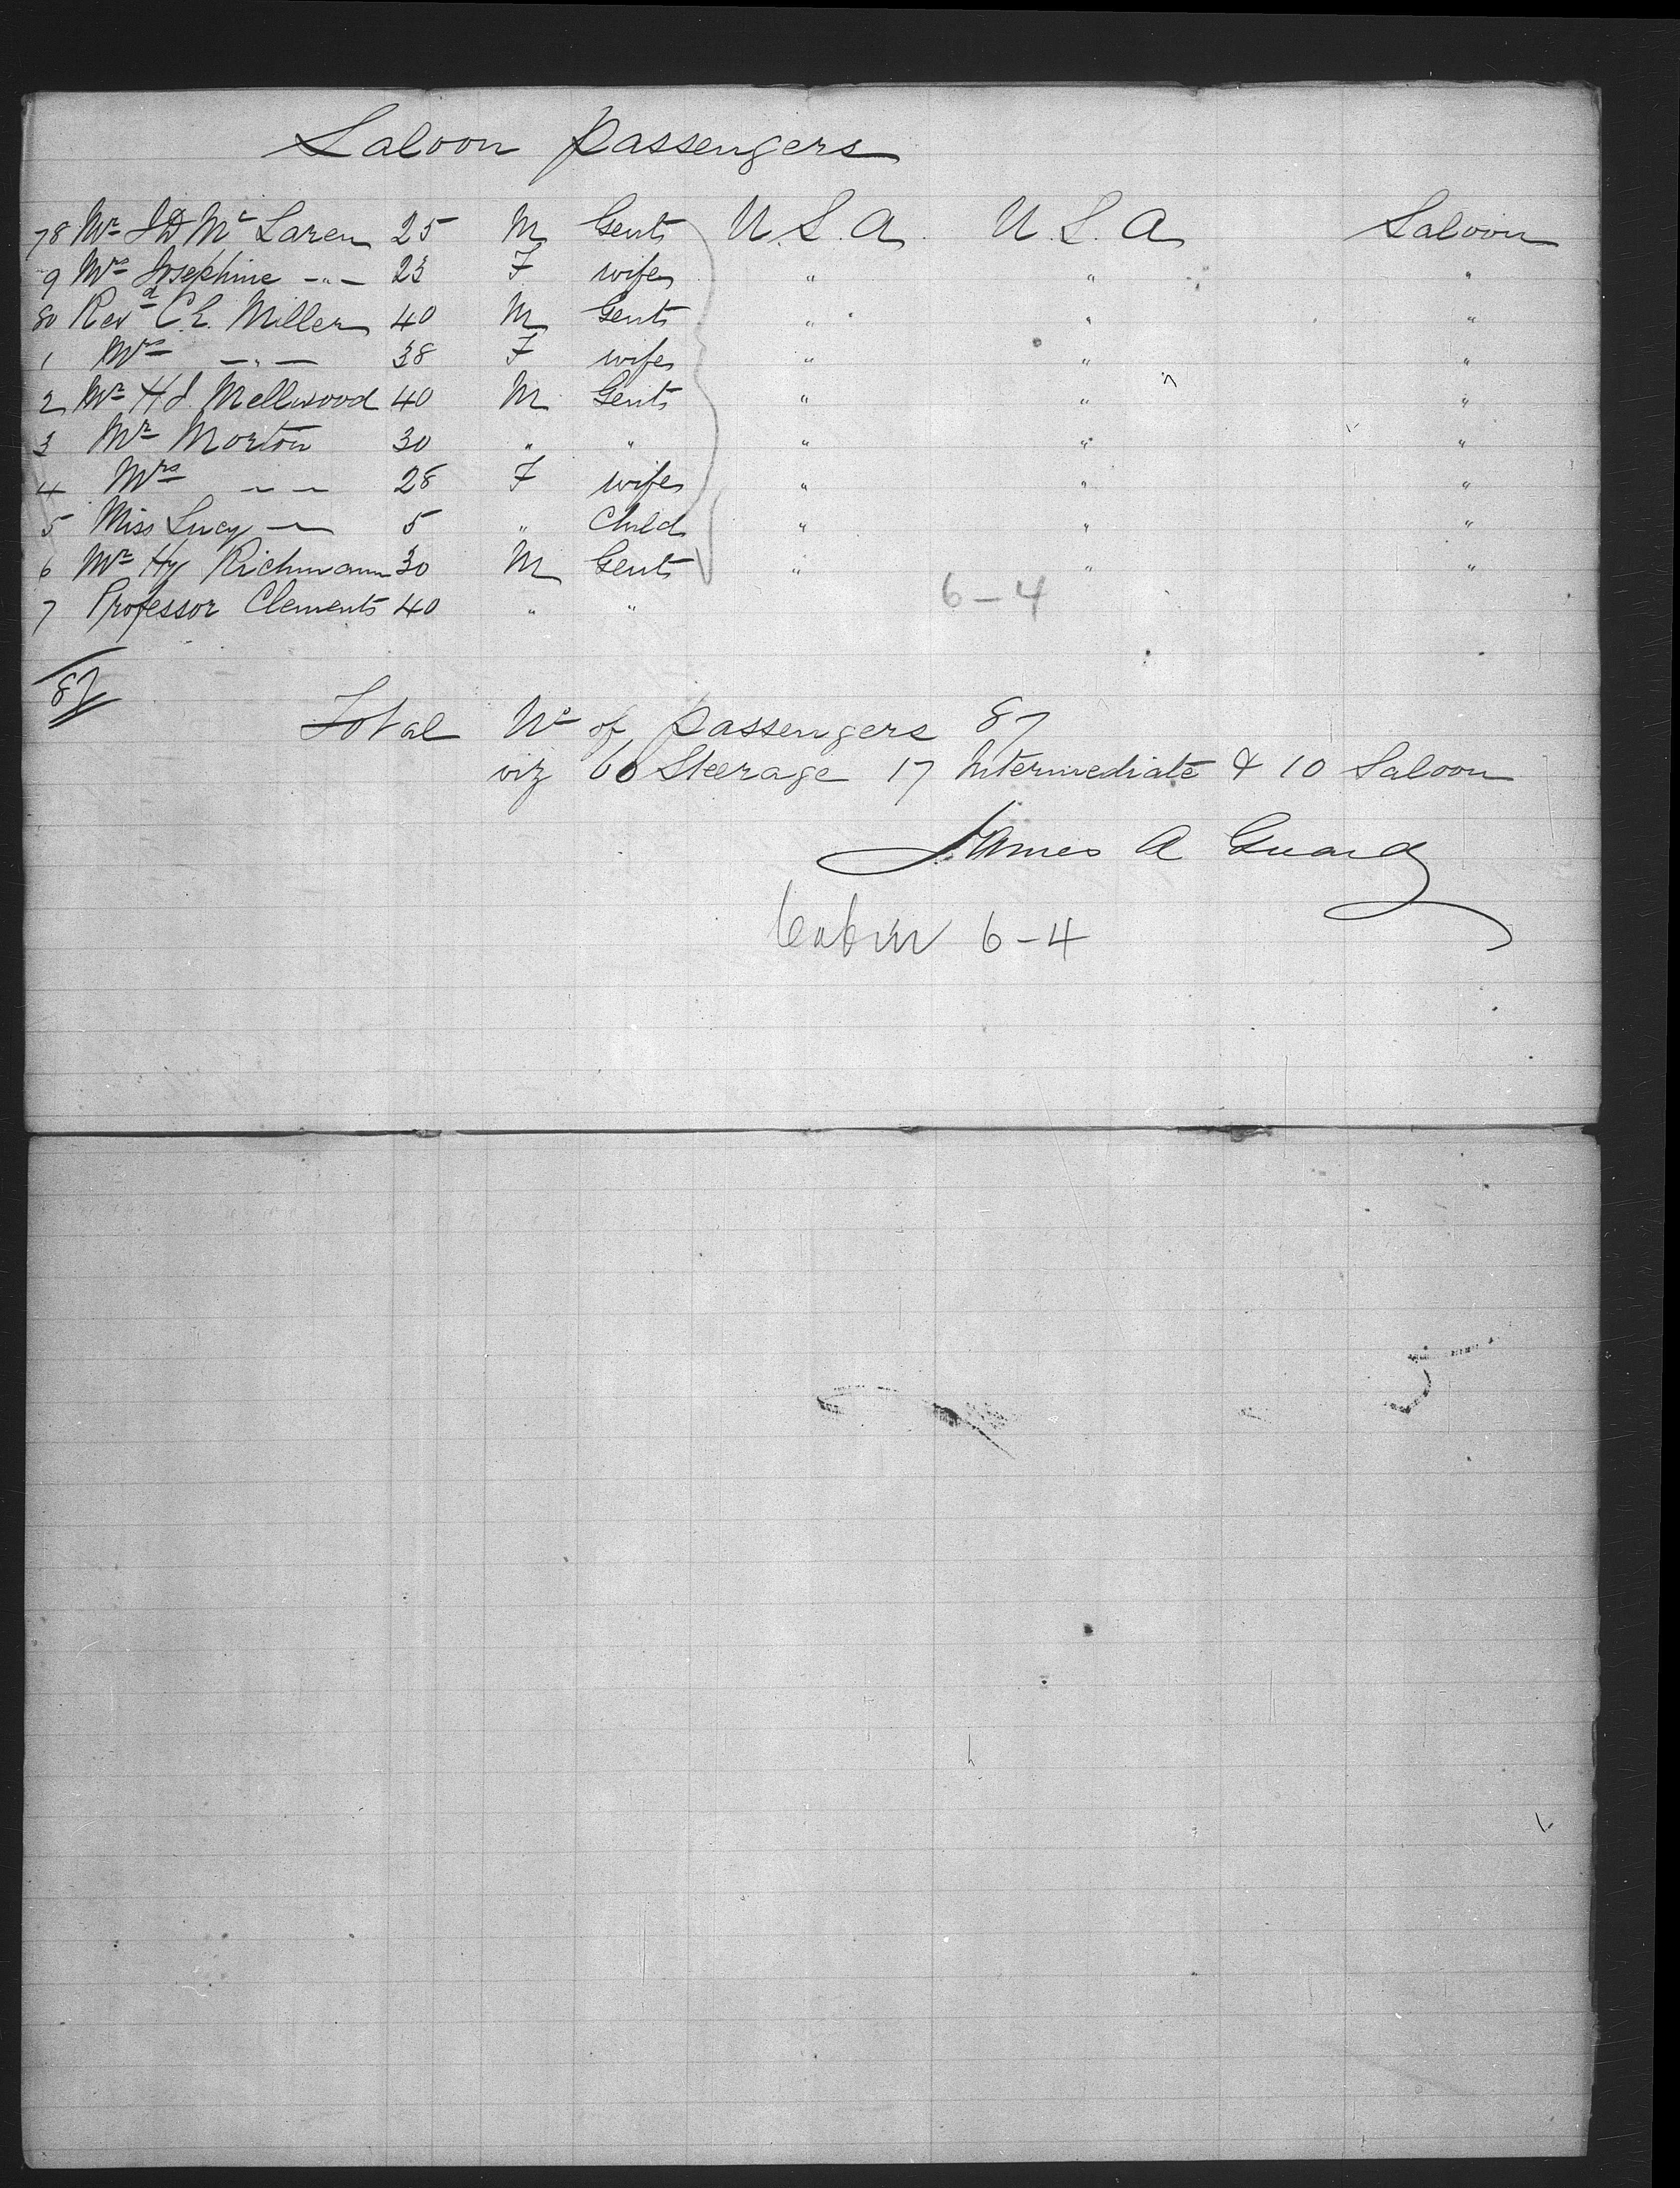 Saloon passengers
78 Mr J D Mc Laren 25 M Gent U.S.A. U.S.A. Saloon
9 Mrs Josephine -"- 23 F wife " " "
80 Revd C.E. Miller 40 M Gent " " "
1 Mrs -"- 38 F wife " " "
2 Mr H J. Mellwood 40 M Gent " " "
3 Mr Morton 30 " " " " "
4 Mrs - - 28 F wife " " "
5 Miss Lucy - 5 " Child " " "
6 Mr Hy Richmann 30 M Gent " " "
7 Professor Clements 40 " " 6-4
87
Total No of passengers 87
viz 60 Steerage 17 Intermediate & 10 Saloon
James A Guard
Cabin 6-4